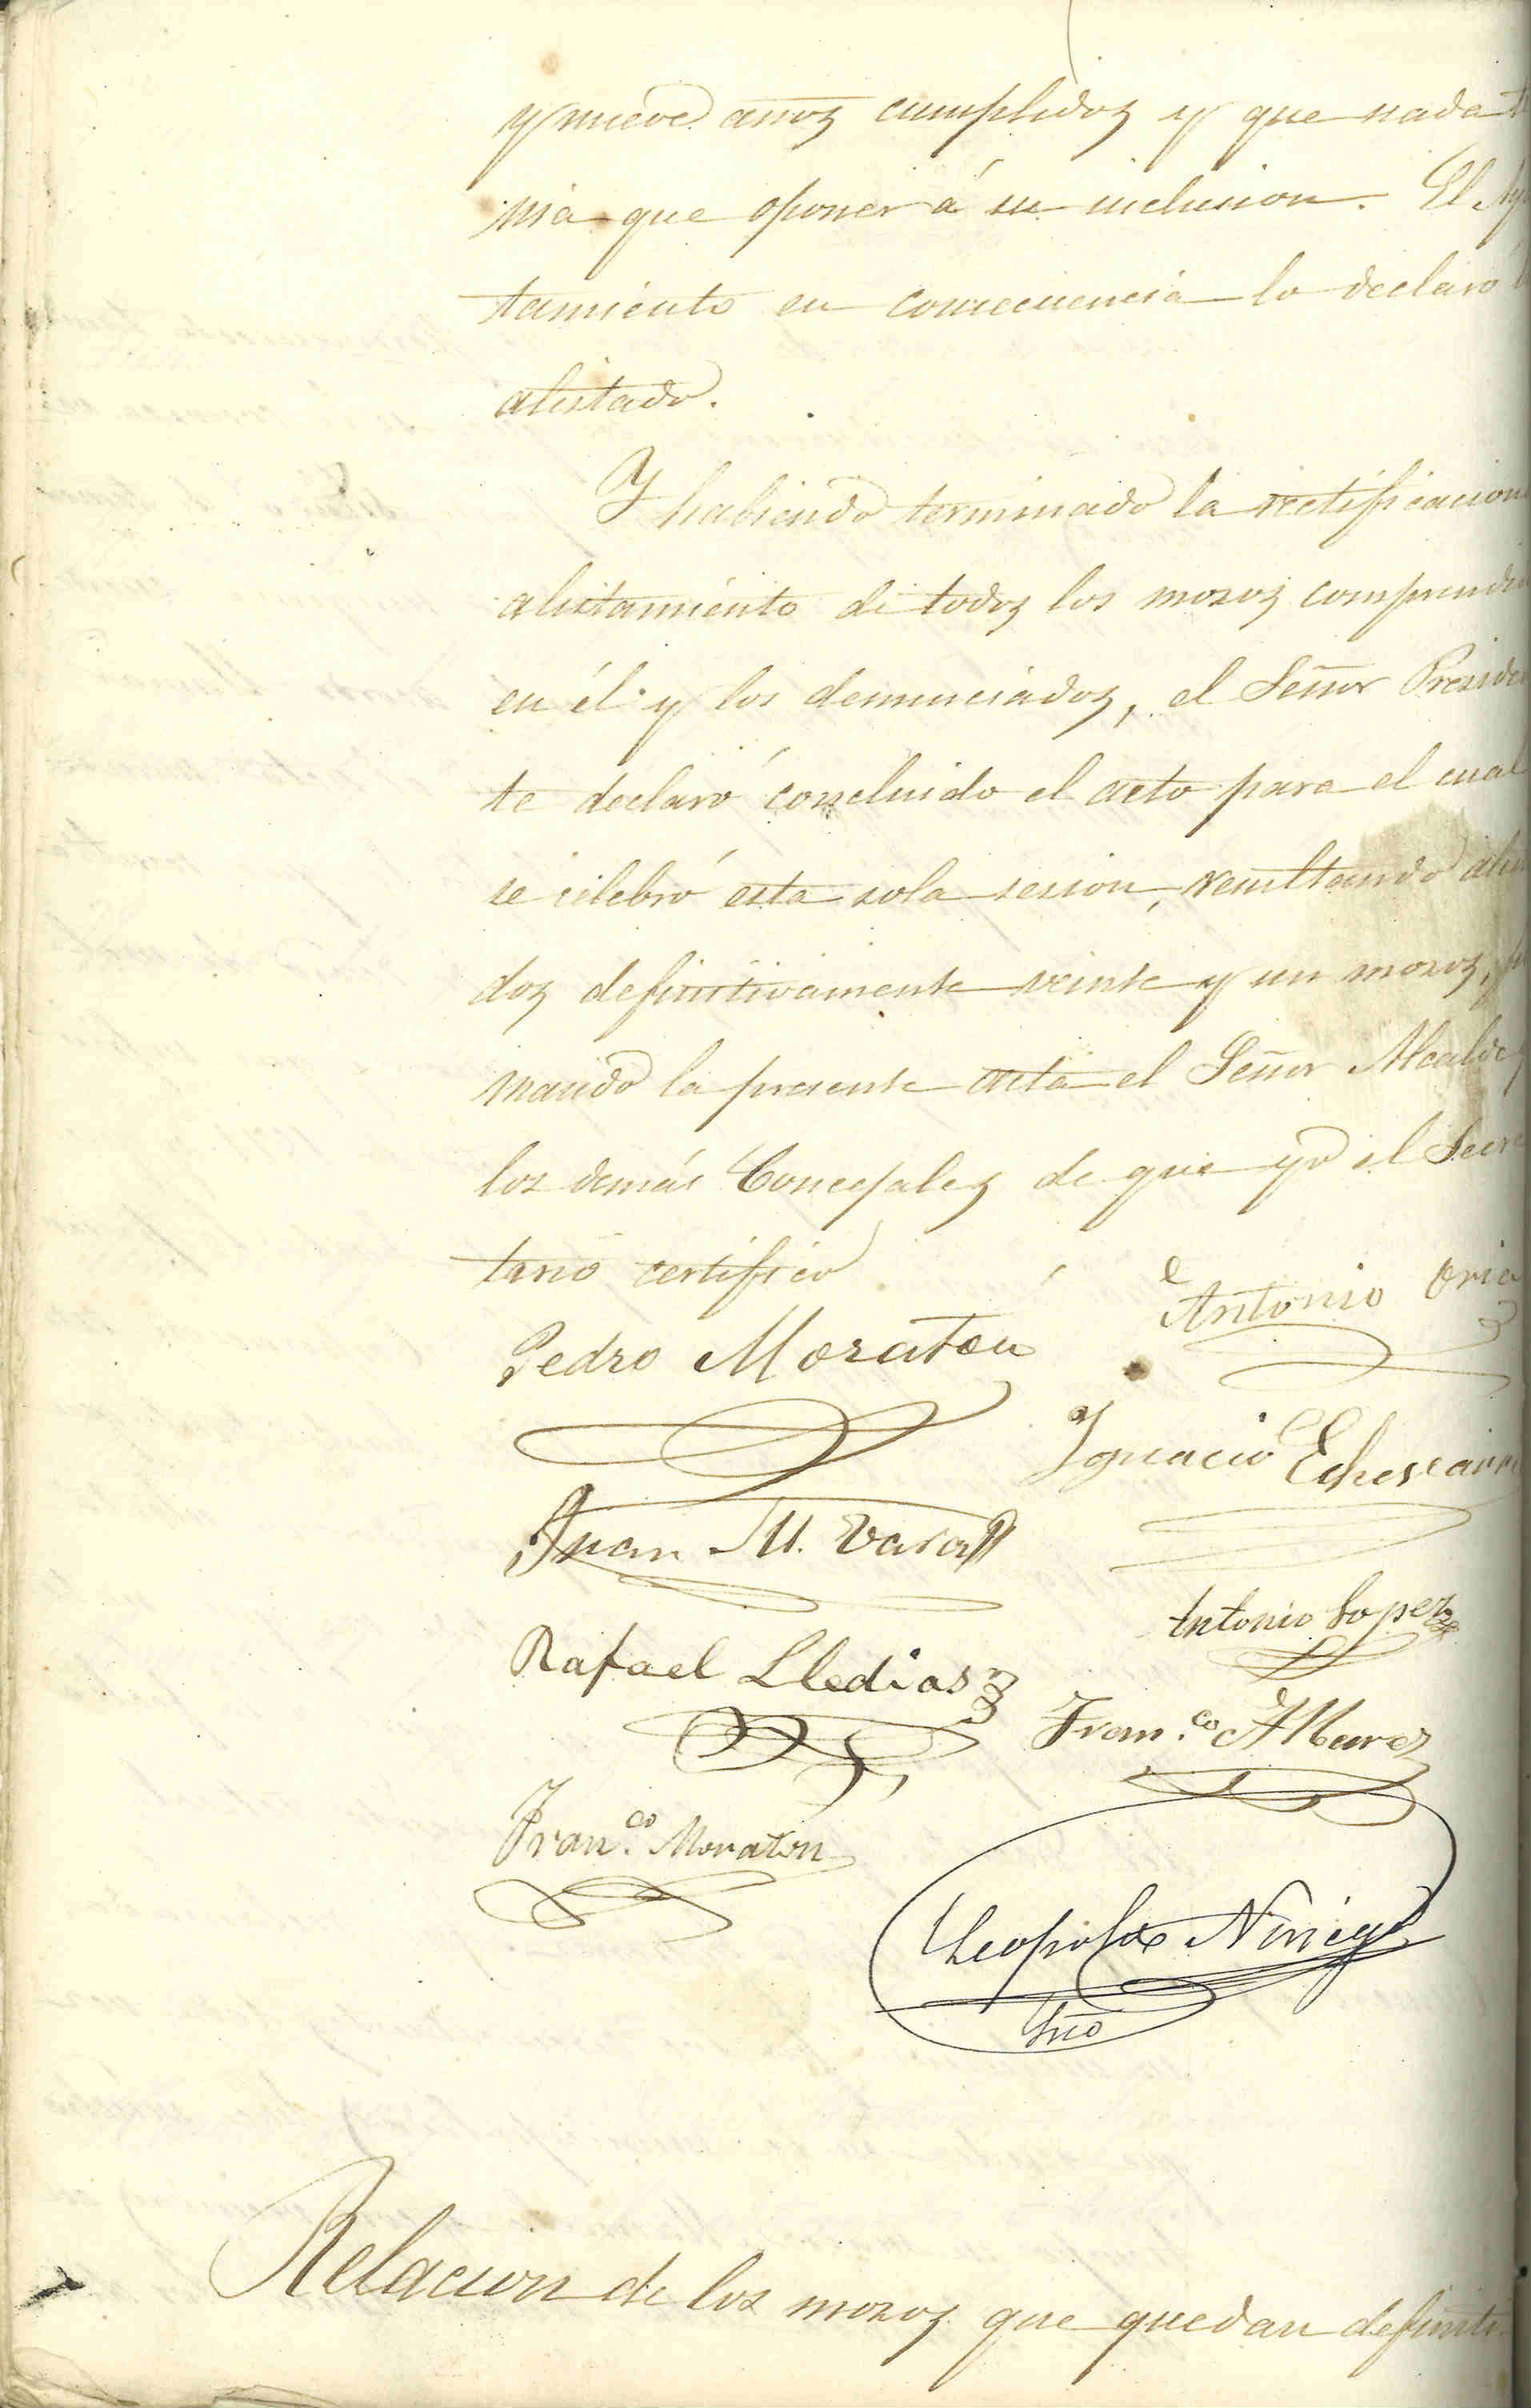 y nueve años cumplidos y que nada t
nia que oponer á su inclusion. El Ay
tamiento en consecuencia lo declaró
alistado.
Y habiendo terminado la rectificacion
alistamiento de todos los mozos comprendi
en él y los denunciados, el Señor Presiden
te declaró concluido el acto para el cual
se celebró esta sola sesion, resultando alis
dos definitivamente veinte y un mozos, fi
mando la presente acta el Señor Alcalde y
los demás Concejales de que yo el Secre
tario certifico
Antonio Oria
Pedro Moraton
Ignacio Echevarri
Juan M. Vara
Antonio Lopez
Rafael Lledias
Fran.co Alvarez
Fran.co Moraton
Leopoldo Noriega
Srio
Relacion de los mozos que quedan definiti